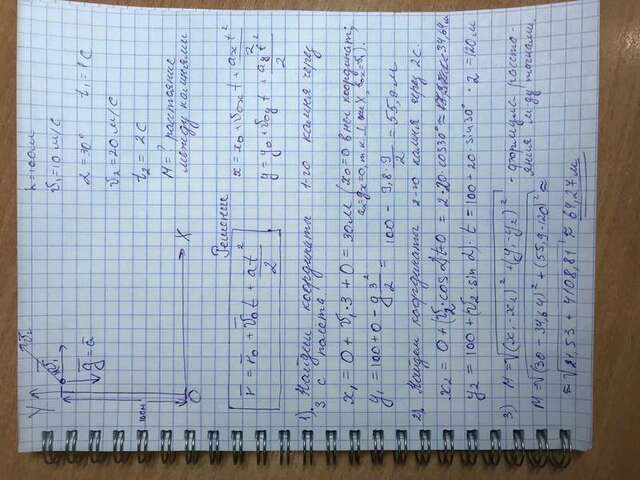 Y
v̄₂
v̄₁
ḡ = ā
100м
X
O
h=100м
v₁=10 м/с
α = 30° t₁=1с
v₂=20 м/с
t₂ = 2с
M=? расстояние
между камнями
Решение
r̄ = r̄₀ + v̄₀t + āt²/2
x = x₀ + v₀ₓt + aₓt²/2
y = y₀ + v₀yt + ayt²/2
1) Найдем координаты 1-го камня через
3 с полета
x₁ = 0 + v₁·3 + 0 = 30м (x₀=0 в нач координат;
aₓ=gₓ=0, т.к. ⊥ оси X, v₀ₓ=v₁).
y₁ = 100+0 - g3²/2 = 100 - 9,8·9/2 = 55,9м
2) Найдем координаты 2-го камня через 2с.
x₂ = 0 + (v₂·cos α)t+0 = 2·20·cos30° ≈ 34,64м
y₂ = 100 + (v₂·sin α)·t = 100+20·sin30°·2 = 120м
3) M = √(x₁-x₂)² + (y₁-y₂)² - формула рассто-
яния м-ду точками
M = √(30-34,64)² + (55,9-120)² ≈
≈ √21,53 + 4108,81 ≈ 64,27м